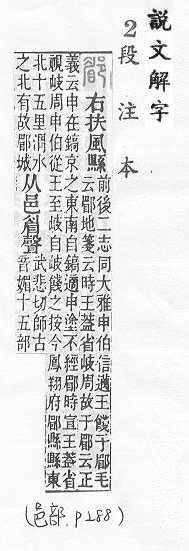 說文解字
2段注本
郿 右扶風縣 前後二志同大雅申伯信邁王餞于郿毛
云郿地箋云時王葢省岐周故于郿云正
義云申在鎬京之東南自鎬適申塗不經郿時宣王葢省
視岐周申伯從王至岐自岐餞之按今鳳翔府郿縣縣東
北十五里渭水
之北有故郿城
从邑眉聲
武悲切師古
音媚十五部
(邑部.P288)